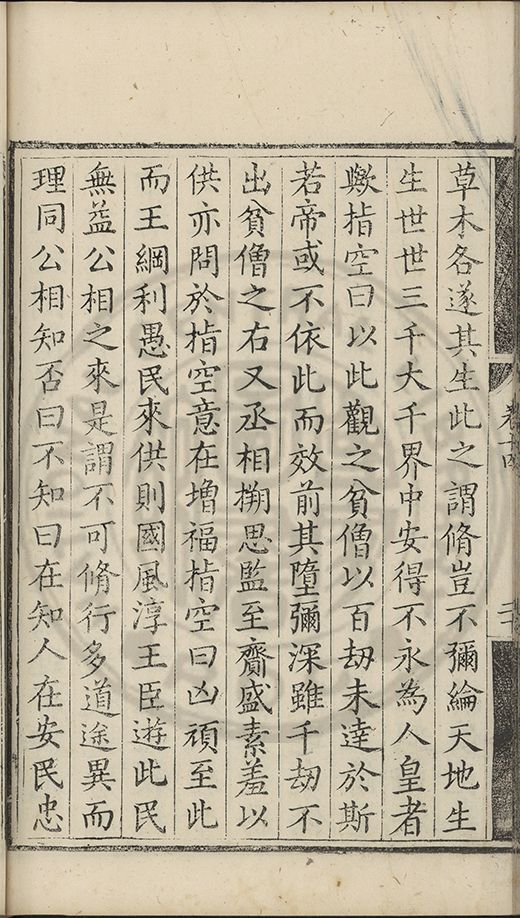 草木各遂其生此之謂脩豈不彌綸天地生
生世世三千大千界中安得不永為人皇者
歟指空曰以此觀之貧僧以百劫未達於斯
若帝或不依此而效前其墮彌深雖千劫不
出貧僧之右又丞相搠思監至齎盛素羞以
供亦問於指空意在增福指空曰凶頑至此
而王綱利愚民來供則國風淳王臣遊此民
無益公相之來是謂不可脩行多道途異而
理同公相知否曰不知曰在知人在安民忠
卷十四